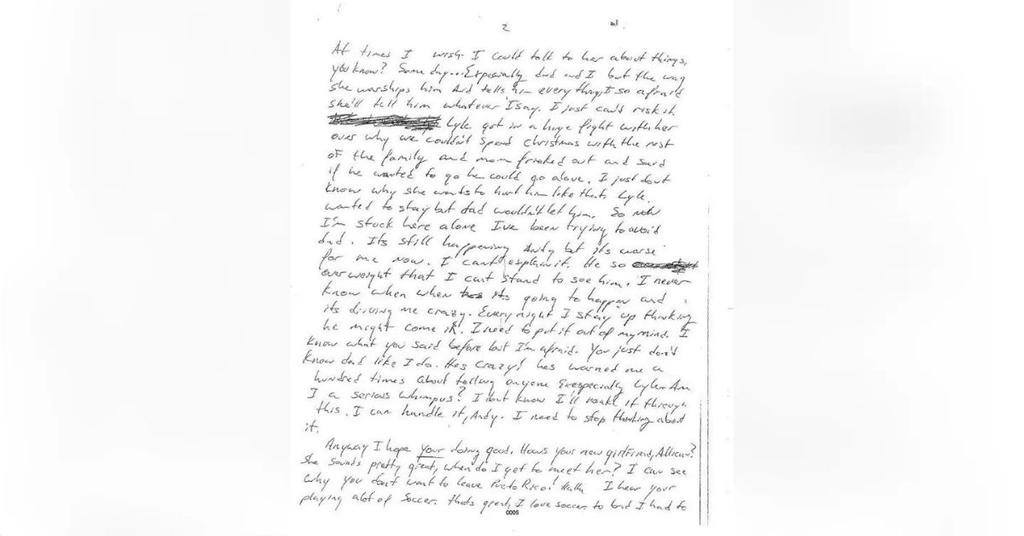 2
At times I wish I could talk to her about things,
you know? Some day... Exspecially dad and I but the way
she warships him and tells him everything I so afraid
she'll tell him whatever I say. I just can't risk it
Lyle got in a huge fight with her
over why we couldn't spend Christmas with the rest
of the family and mom freaked out and said
if he wanted to go he could go alone. I just don't
know why she wants to hurt him like that. Lyle
wanted to stay but dad wouldn't let him. So now
I'm stuck here alone I've been trying to avoid
dad. Its still happening Andy but its worse
for me now. I can't explain it. He so
overweight that I can't stand to see him. I never
know when when its going to happen and
its driving me crazy. Every night I stay up thinking
he might come in. I need to put it out of my mind. I
know what you said before but I'm afraid. You just don't
know dad like I do. Hes crazy! hes warned me a
hundred times about telling anyone Exspecially Lyle. Am
I a serious whimpus? I don't know I'll make it through
this. I can handle it, Andy. I need to stop thinking about
it.
Anyway I hope your doing good. Hows your new girlfriend, Allican?
She sounds pretty great, when do I get to meet her? I can see
why you don't want to leave Puto Rico! I hear your
playing alot of soccer. thats great, I love soccer to but I had to
0005